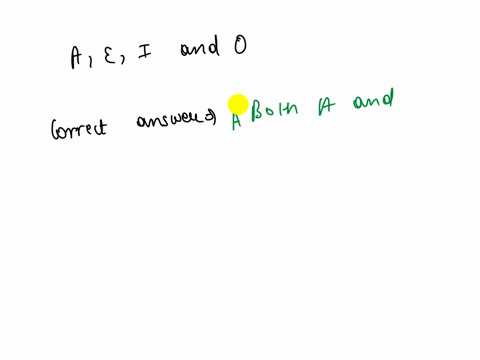 A, E, I and O
Correct answer⇒ A Both A and